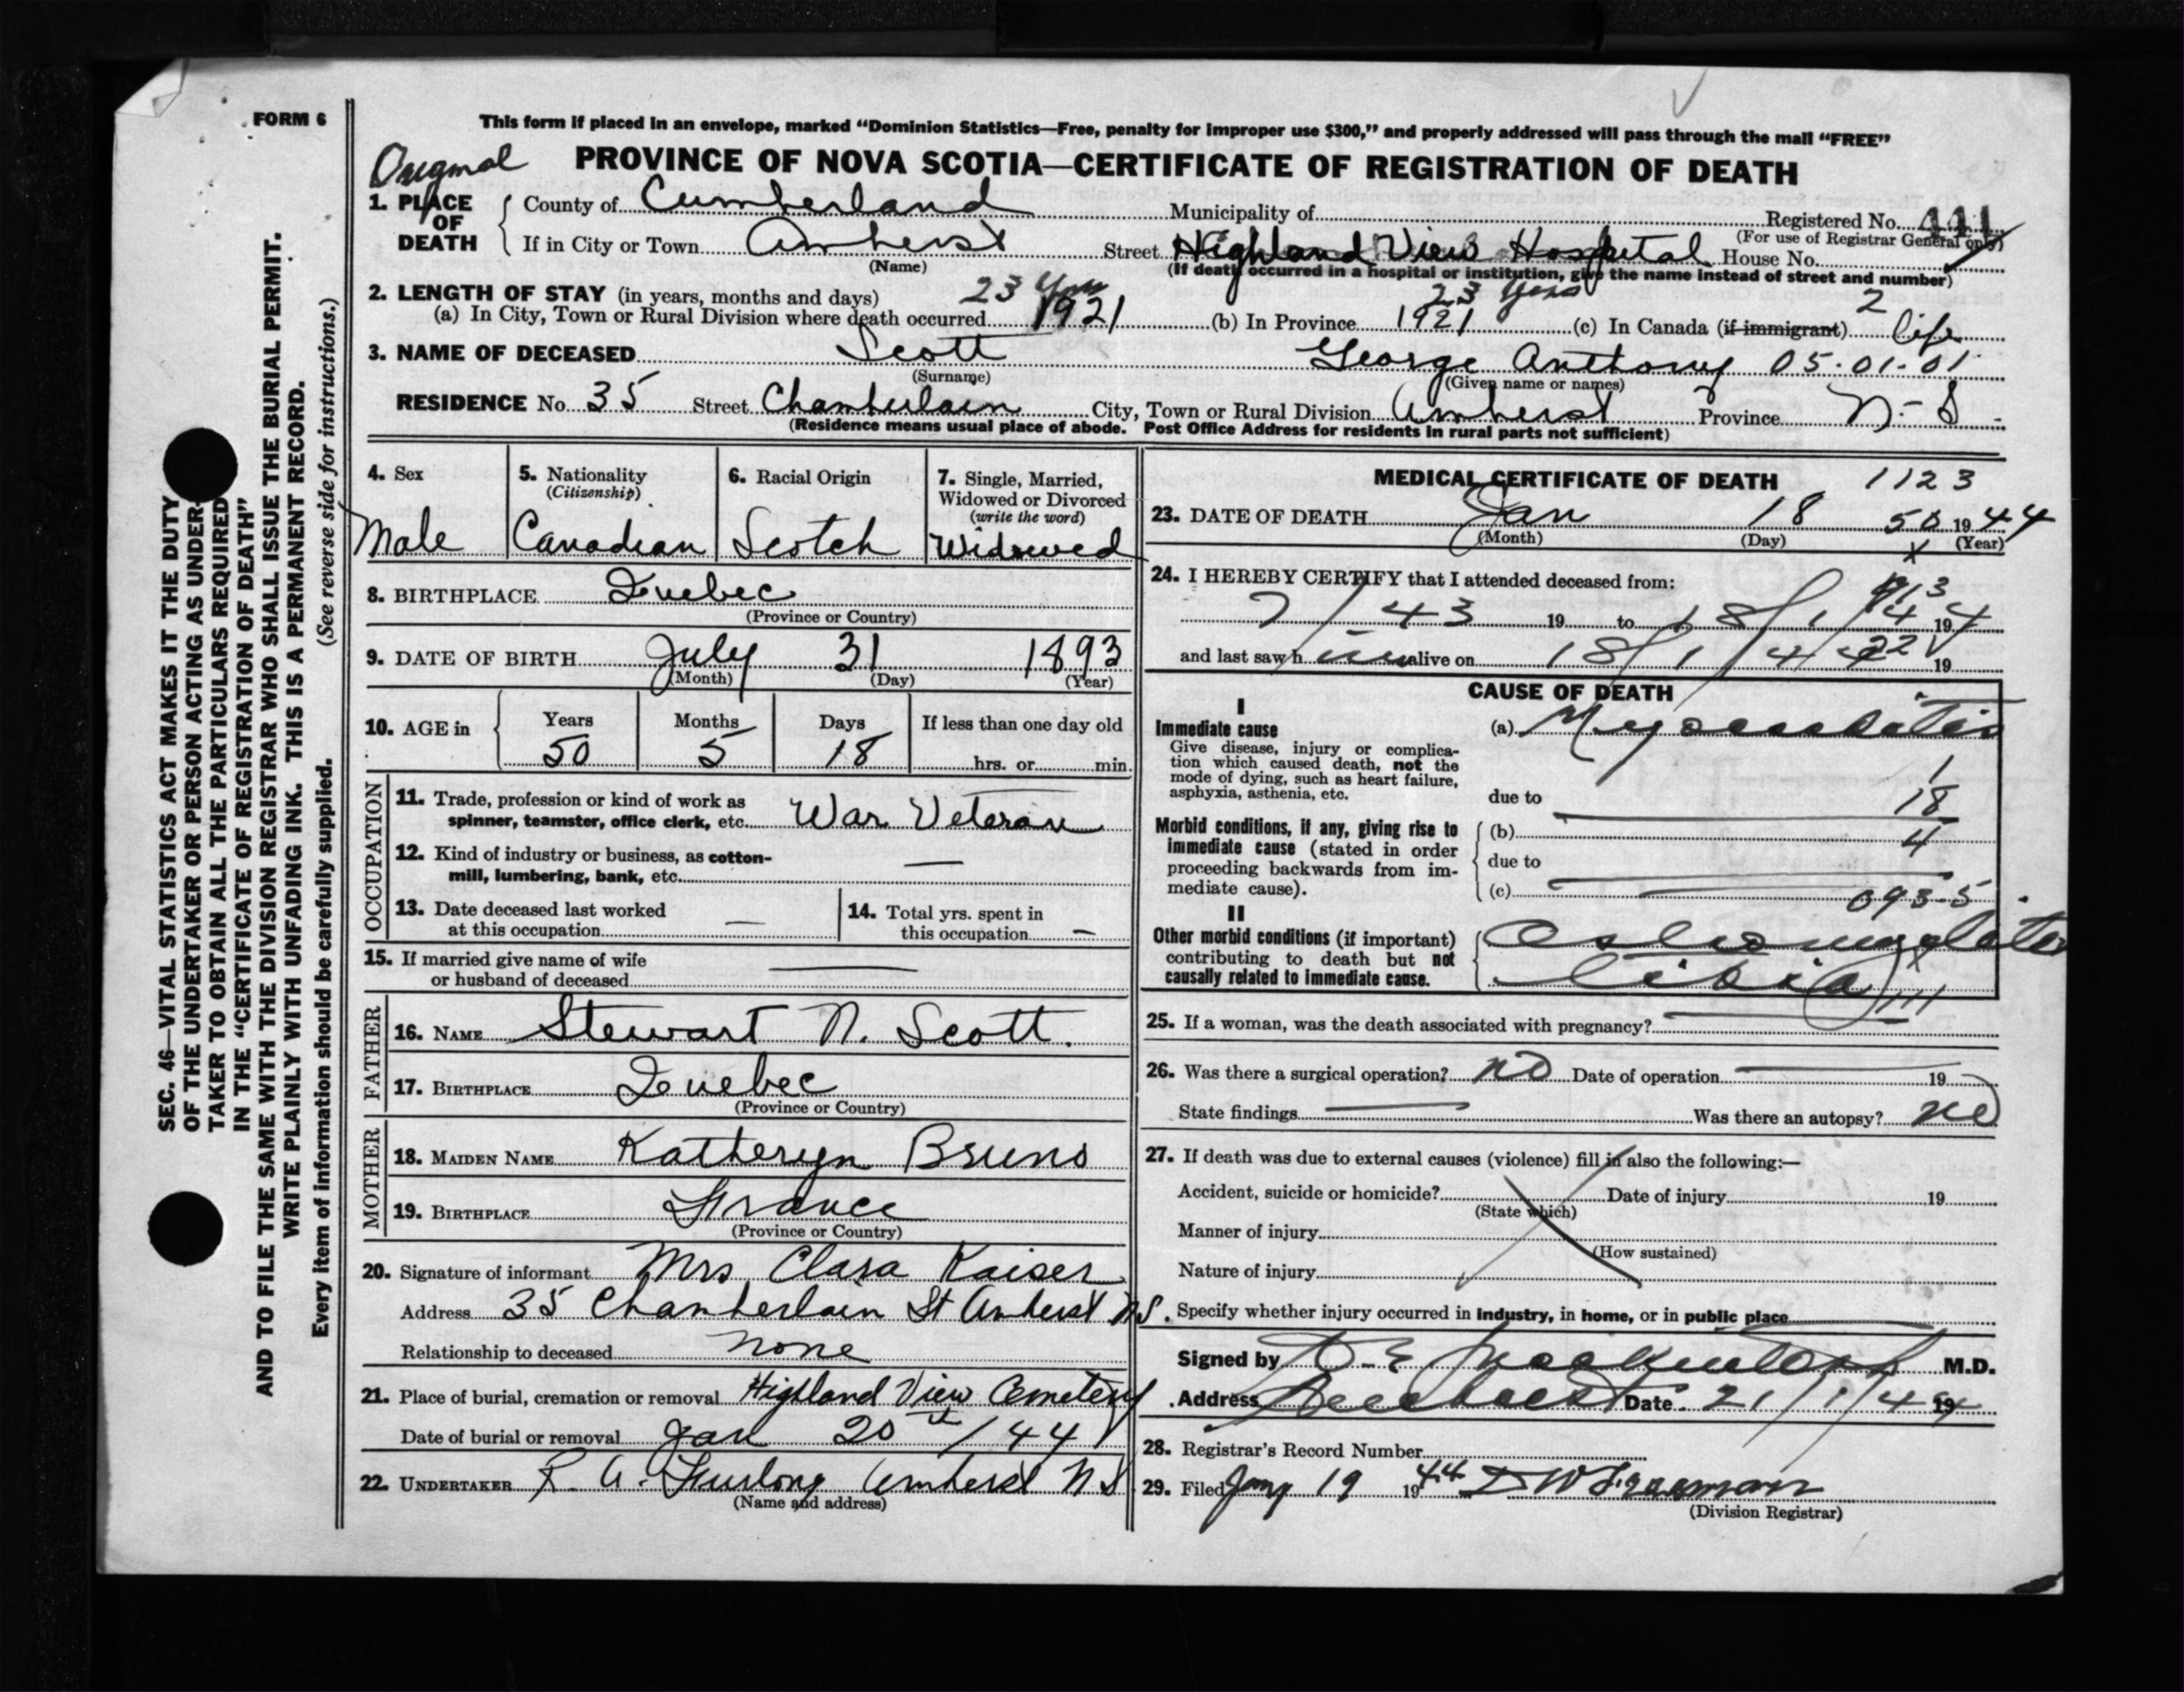 FORM 6
This form if placed in an envelope, marked “Dominion Statistics—Free, penalty for improper use $300,” and properly addressed will pass through the mail “FREE”
Original
PROVINCE OF NOVA SCOTIA—CERTIFICATE OF REGISTRATION OF DEATH
1. PLACE OF DEATH
County of Cumberland Municipality of Registered No. 441
(For use of Registrar General only)
If in City or Town Amherst Street Highland View Hospital House No.
(Name) (If death occurred in a hospital or institution, give the name instead of street and number)
2. LENGTH OF STAY (in years, months and days) 23 yrs 23 years
(a) In City, Town or Rural Division where death occurred 1921 (b) In Province 1921 (c) In Canada (if immigrant) 2 life
3. NAME OF DECEASED Scott George Anthony 05.01.01
(Surname) (Given name or names)
RESIDENCE No. 35 Street Chamberlain City, Town or Rural Division Amherst Province N.S.
(Residence means usual place of abode. Post Office Address for residents in rural parts not sufficient)
4. Sex 5. Nationality 6. Racial Origin 7. Single, Married,
(Citizenship) Widowed or Divorced
(write the word)
Male Canadian Scotch Widowed
8. BIRTHPLACE Quebec
(Province or Country)
9. DATE OF BIRTH July 31 1893
(Month) (Day) (Year)
10. AGE in Years Months Days If less than one day old
50 5 18 hrs. or min.
OCCUPATION
11. Trade, profession or kind of work as
spinner, teamster, office clerk, etc. War Veteran
12. Kind of industry or business, as cotton-
mill, lumbering, bank, etc. —
13. Date deceased last worked
at this occupation —
14. Total yrs. spent in
this occupation —
15. If married give name of wife
or husband of deceased
FATHER
16. NAME Stewart N. Scott.
17. BIRTHPLACE Quebec
(Province or Country)
MOTHER
18. MAIDEN NAME Katheryn Bruno
19. BIRTHPLACE France
(Province or Country)
20. Signature of informant Mrs Clara Kaiser
Address 35 Chamberlain St Amherst N.S.
Relationship to deceased None
21. Place of burial, cremation or removal Highland View Cemetery
Date of burial or removal Jan 20th/44
22. UNDERTAKER R. A. Furlong Amherst N S
(Name and address)
MEDICAL CERTIFICATE OF DEATH 1123
23. DATE OF DEATH Jan 18 50 1944
(Month) (Day) (Year)
24. I HEREBY CERTIFY that I attended deceased from:
7/43 19 to 18/1/44 19
and last saw h im alive on 18/1/44 19
CAUSE OF DEATH
I
Immediate cause
Give disease, injury or complica-
tion which caused death, not the
mode of dying, such as heart failure,
asphyxia, asthenia, etc.
(a) Myocarditis
1
due to 18
Morbid conditions, if any, giving rise to
immediate cause (stated in order
proceeding backwards from im-
mediate cause).
(b) 4
due to
(c) 093.5
II
Other morbid conditions (if important)
contributing to death but not
causally related to immediate cause.
Osteomyelitis
tibia
25. If a woman, was the death associated with pregnancy?
26. Was there a surgical operation? no Date of operation 19
State findings Was there an autopsy? no
27. If death was due to external causes (violence) fill in also the following:—
Accident, suicide or homicide? Date of injury 19
(State which)
Manner of injury
(How sustained)
Nature of injury
Specify whether injury occurred in industry, in home, or in public place
Signed by D. E. Mackintosh M.D.
Address Date 21/1/44 19
28. Registrar's Record Number
29. Filed Jany 19 1944 D W Freeman
(Division Registrar)
SEC. 46—VITAL STATISTICS ACT MAKES IT THE DUTY
OF THE UNDERTAKER OR PERSON ACTING AS UNDER-
TAKER TO OBTAIN ALL THE PARTICULARS REQUIRED
IN THE “CERTIFICATE OF REGISTRATION OF DEATH”
AND TO FILE THE SAME WITH THE DIVISION REGISTRAR WHO SHALL ISSUE THE BURIAL PERMIT.
WRITE PLAINLY WITH UNFADING INK. THIS IS A PERMANENT RECORD.
Every item of information should be carefully supplied. (See reverse side for instructions.)